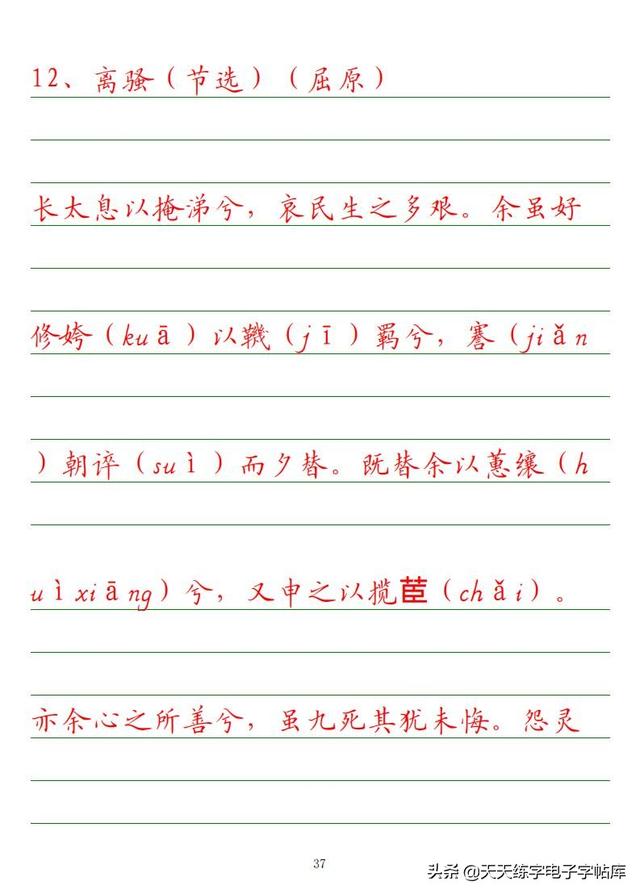 12、离骚（节选）（屈原）
长太息以掩涕兮，哀民生之多艰。余虽好
修姱（kuā）以鞿（jī）羁兮，謇（jiǎn
）朝谇（suì）而夕替。既替余以蕙纕（h
uìxiāng）兮，又申之以揽茝（chǎi）。
亦余心之所善兮，虽九死其犹未悔。怨灵
37
头条 @天天练字电子字帖库